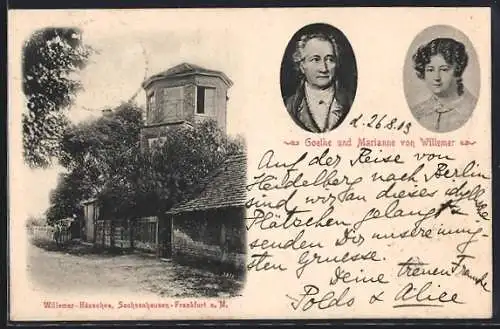 d. 26.8.03
Goethe und Marianne von Willemer
Auf der Reise von
Heidelberg nach Berlin
sind wir an dieses idyllische
Plätzchen gelangt &
senden Dir unsere innig-
sten Gruesse.
Deine treuen
Poldo & Alice
Willemer-Häuschen, Sachsenhausen-Frankfurt a. M.